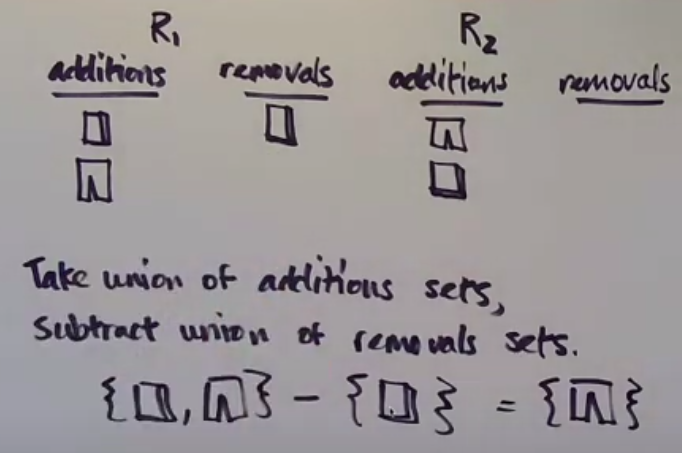 R₁ R₂
additions removals additions removals
Take union of additions sets,
subtract union of removals sets.
{ , } - { } = { }